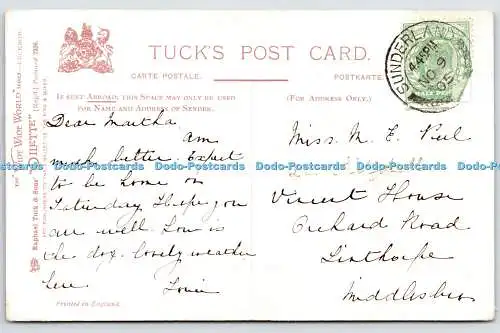 TUCK'S POST CARD.
CARTE POSTALE.
POSTKARTE.
IF SENT ABROAD, THIS SPACE MAY ONLY BE USED
FOR NAME AND ADDRESS OF SENDER.
(FOR ADDRESS ONLY.)
SUNDERLAND
NO 9
05
Dear Martha
am
much better. Expect
to be home on
Saturday. I hope you
are well. How is
the dog. lovely weather
here.
Louie
Miss. M. E.
Vincent House
Orchard Road
Linthorpe
Middlesbro
Printed in England.
Raphael Tuck & Sons'
"OILETTE"
Dodo-Postcards Dodo-Postcards Dodo-Postcards Dodo-Postcards